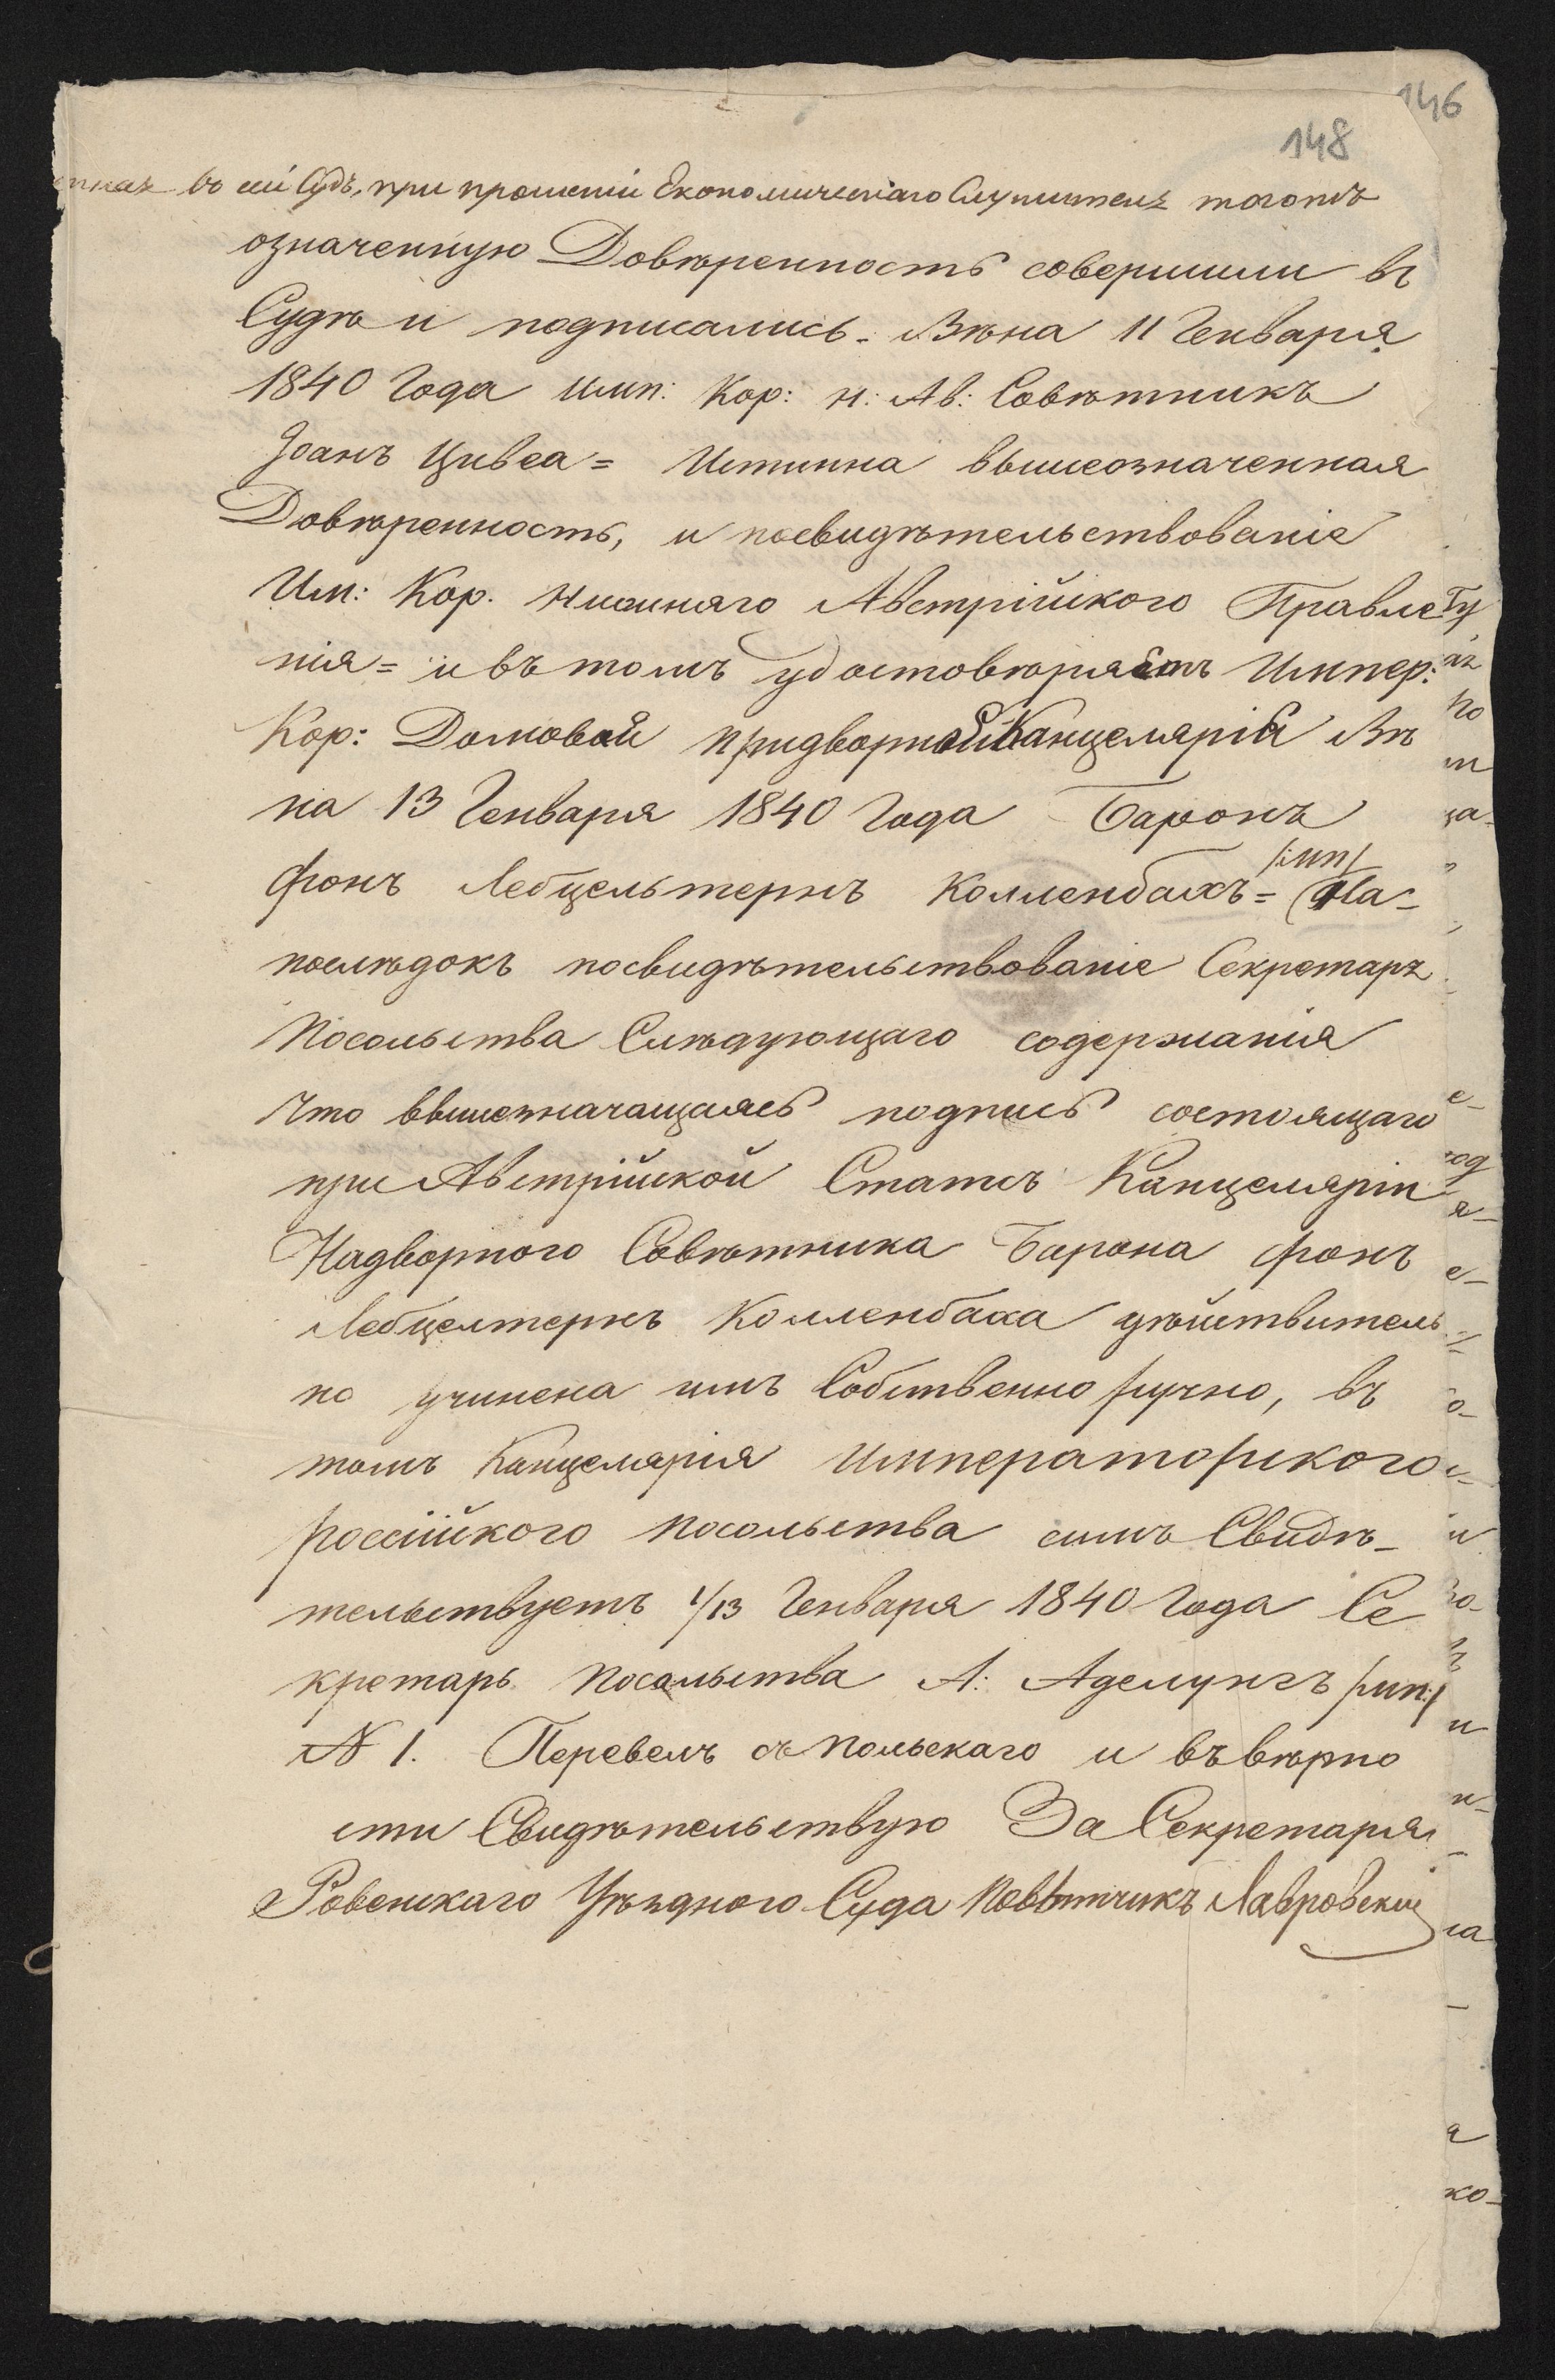 146
148
въ сей Судъ, при прошеніи Економическаго Служителя
означенную Довѣренность совершили въ
Судѣ и подписались. Вѣна 11 Генваря
1840 Года Имп: Кор: Н: Ав: Совѣтникъ
Іоанъ Цивеа = Истинна вышеозначенная
Довѣренность, и посвидѣтельствованіе
Им: Кор. Нижняго Австрійского Правле
нія = и въ томъ удостовѣряетъ Импер:
Кор: Домовой придворной Канцеляріи Вѣ
на 13 Генваря 1840 Года Баронъ
фонъ Лебцельтернъ Колленбахъ = /:мп/ На-
послѣдокъ посвидѣтельствованіе Секретаря
Посольства Слѣдующаго содержанія
Что вышезначащаяся подпись состоящаго
при Австрійской Статсъ Канцеляріи
Надворного Совѣтника Барона фонъ
Лебцелтернъ Колленбаха дѣйствитель
но учинена имъ Собственно ручно, въ
томъ Канцелярія Императорского
россійского посольства симъ Свидѣ-
тельствуетъ 1/13 Генваря 1840 Года Се
кретарь Посольства А: Аделунгъ /:мп:/
N 1. Перевелъ съ польскаго и въ вѣрно
сти Свидѣтельствую За Секретаря
Ровенскаго Уѣзднаго Суда Повытчикъ Лавровскій